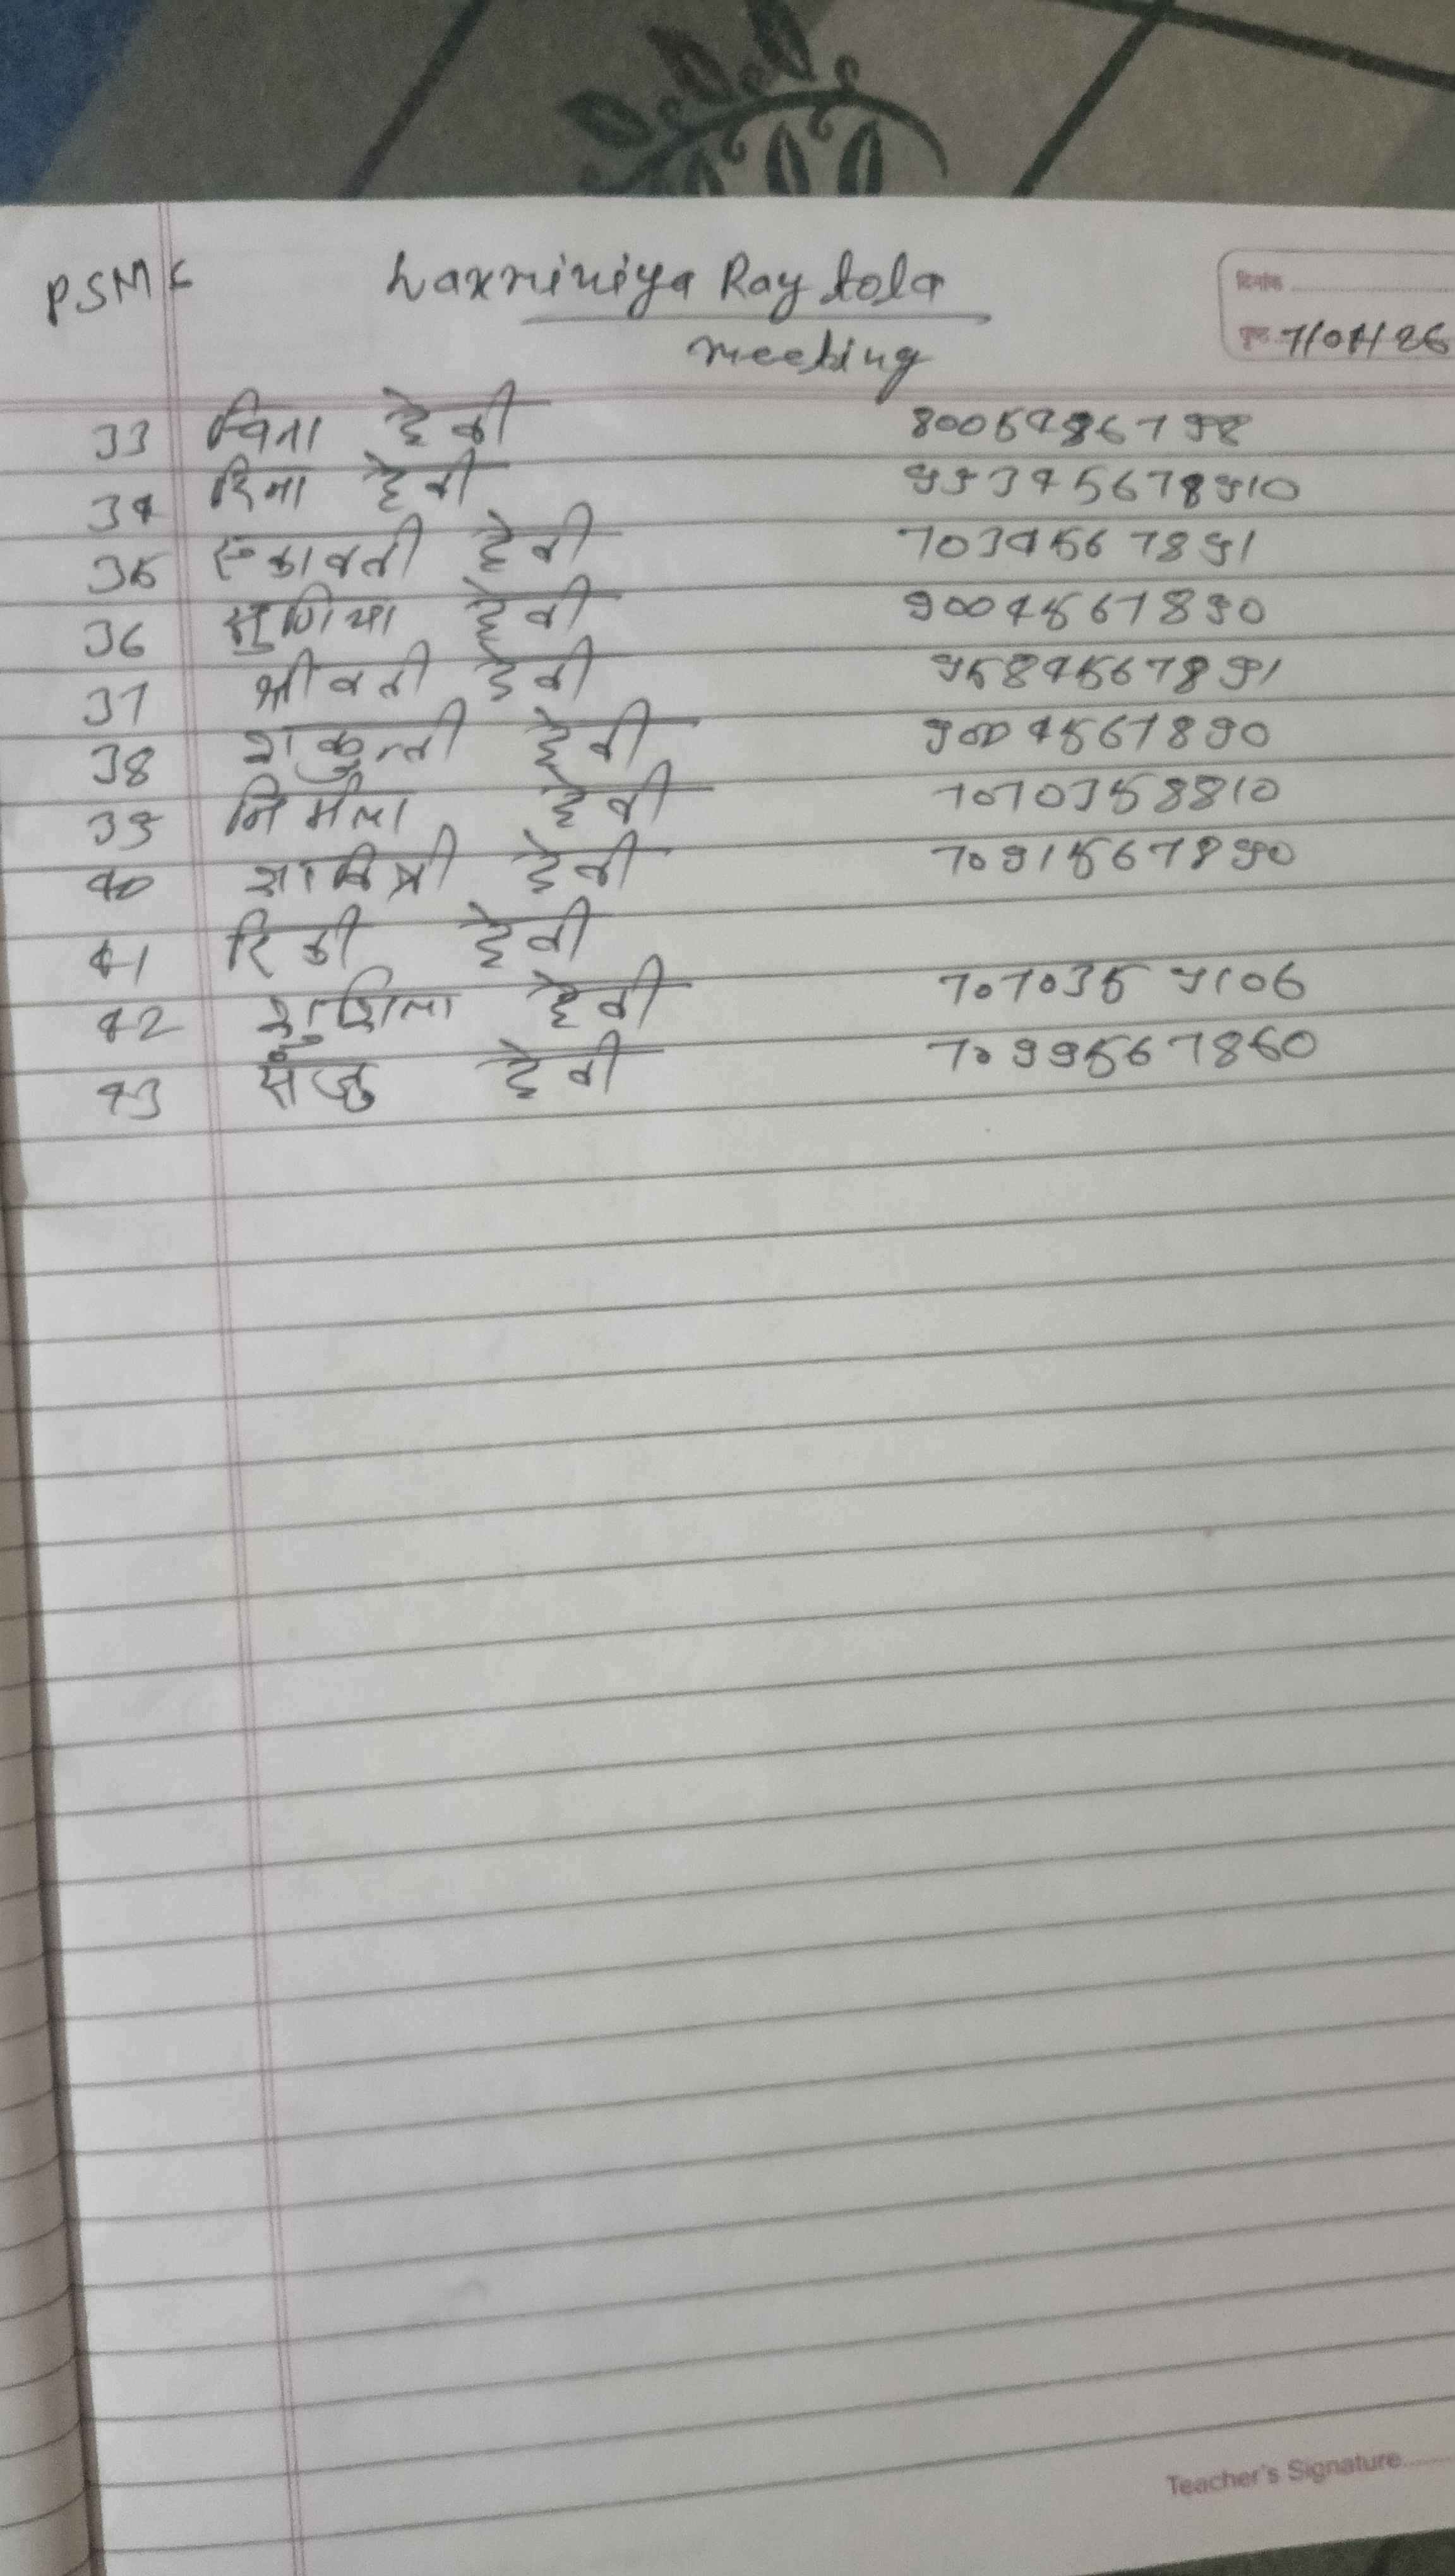 PSMC Laxminiya Ray tola
दिनांक
meeting
पृष्ठ 7/01/26
33 विना देवी 8005486798
34 रिना देवी 99345678910
35 देवी 7034567891
36 सुगिया देवी 9004567890
37 श्रीवती देवी 9584567891
38 शकुन्ती देवी 9004567890
39 निर्मला देवी 7070358810
40 सावित्री देवी 7091567890
41 रिंकी देवी
42 शुशिला देवी 7070359106
43 संजु देवी 7099567860
Teacher's Signature